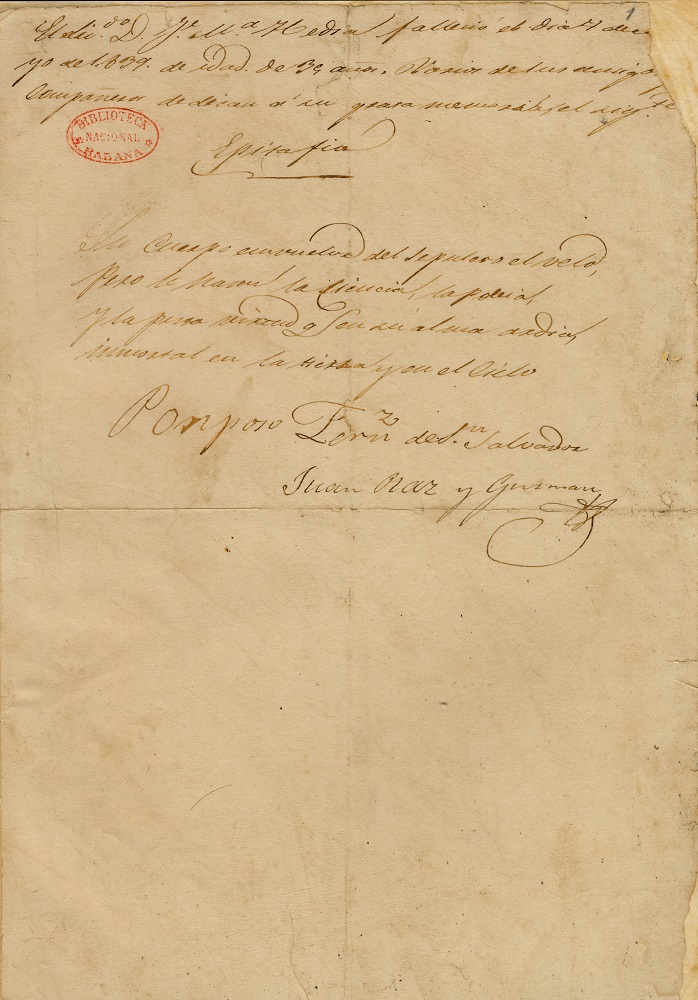 1
El Lic.do D. J.e M.a Hedia falleció el dia 7 de
yo de 1.839. de edad de 35 años. Varios de sus amigos y
compañeros dedican á su grata memoria el sig.te
BIBLIOTECA
NACIONAL
HABANA
Epitafio
Su cuerpo envuelve del sepulcro el velo,
Pero le haran la ciencia, la poesia,
Y la pura virtud q.e en su alma ardia,
inmortal en la tierra y en el Cielo
Ponposo Fern.z de S.n Salvador
Juan Raz y Guzman